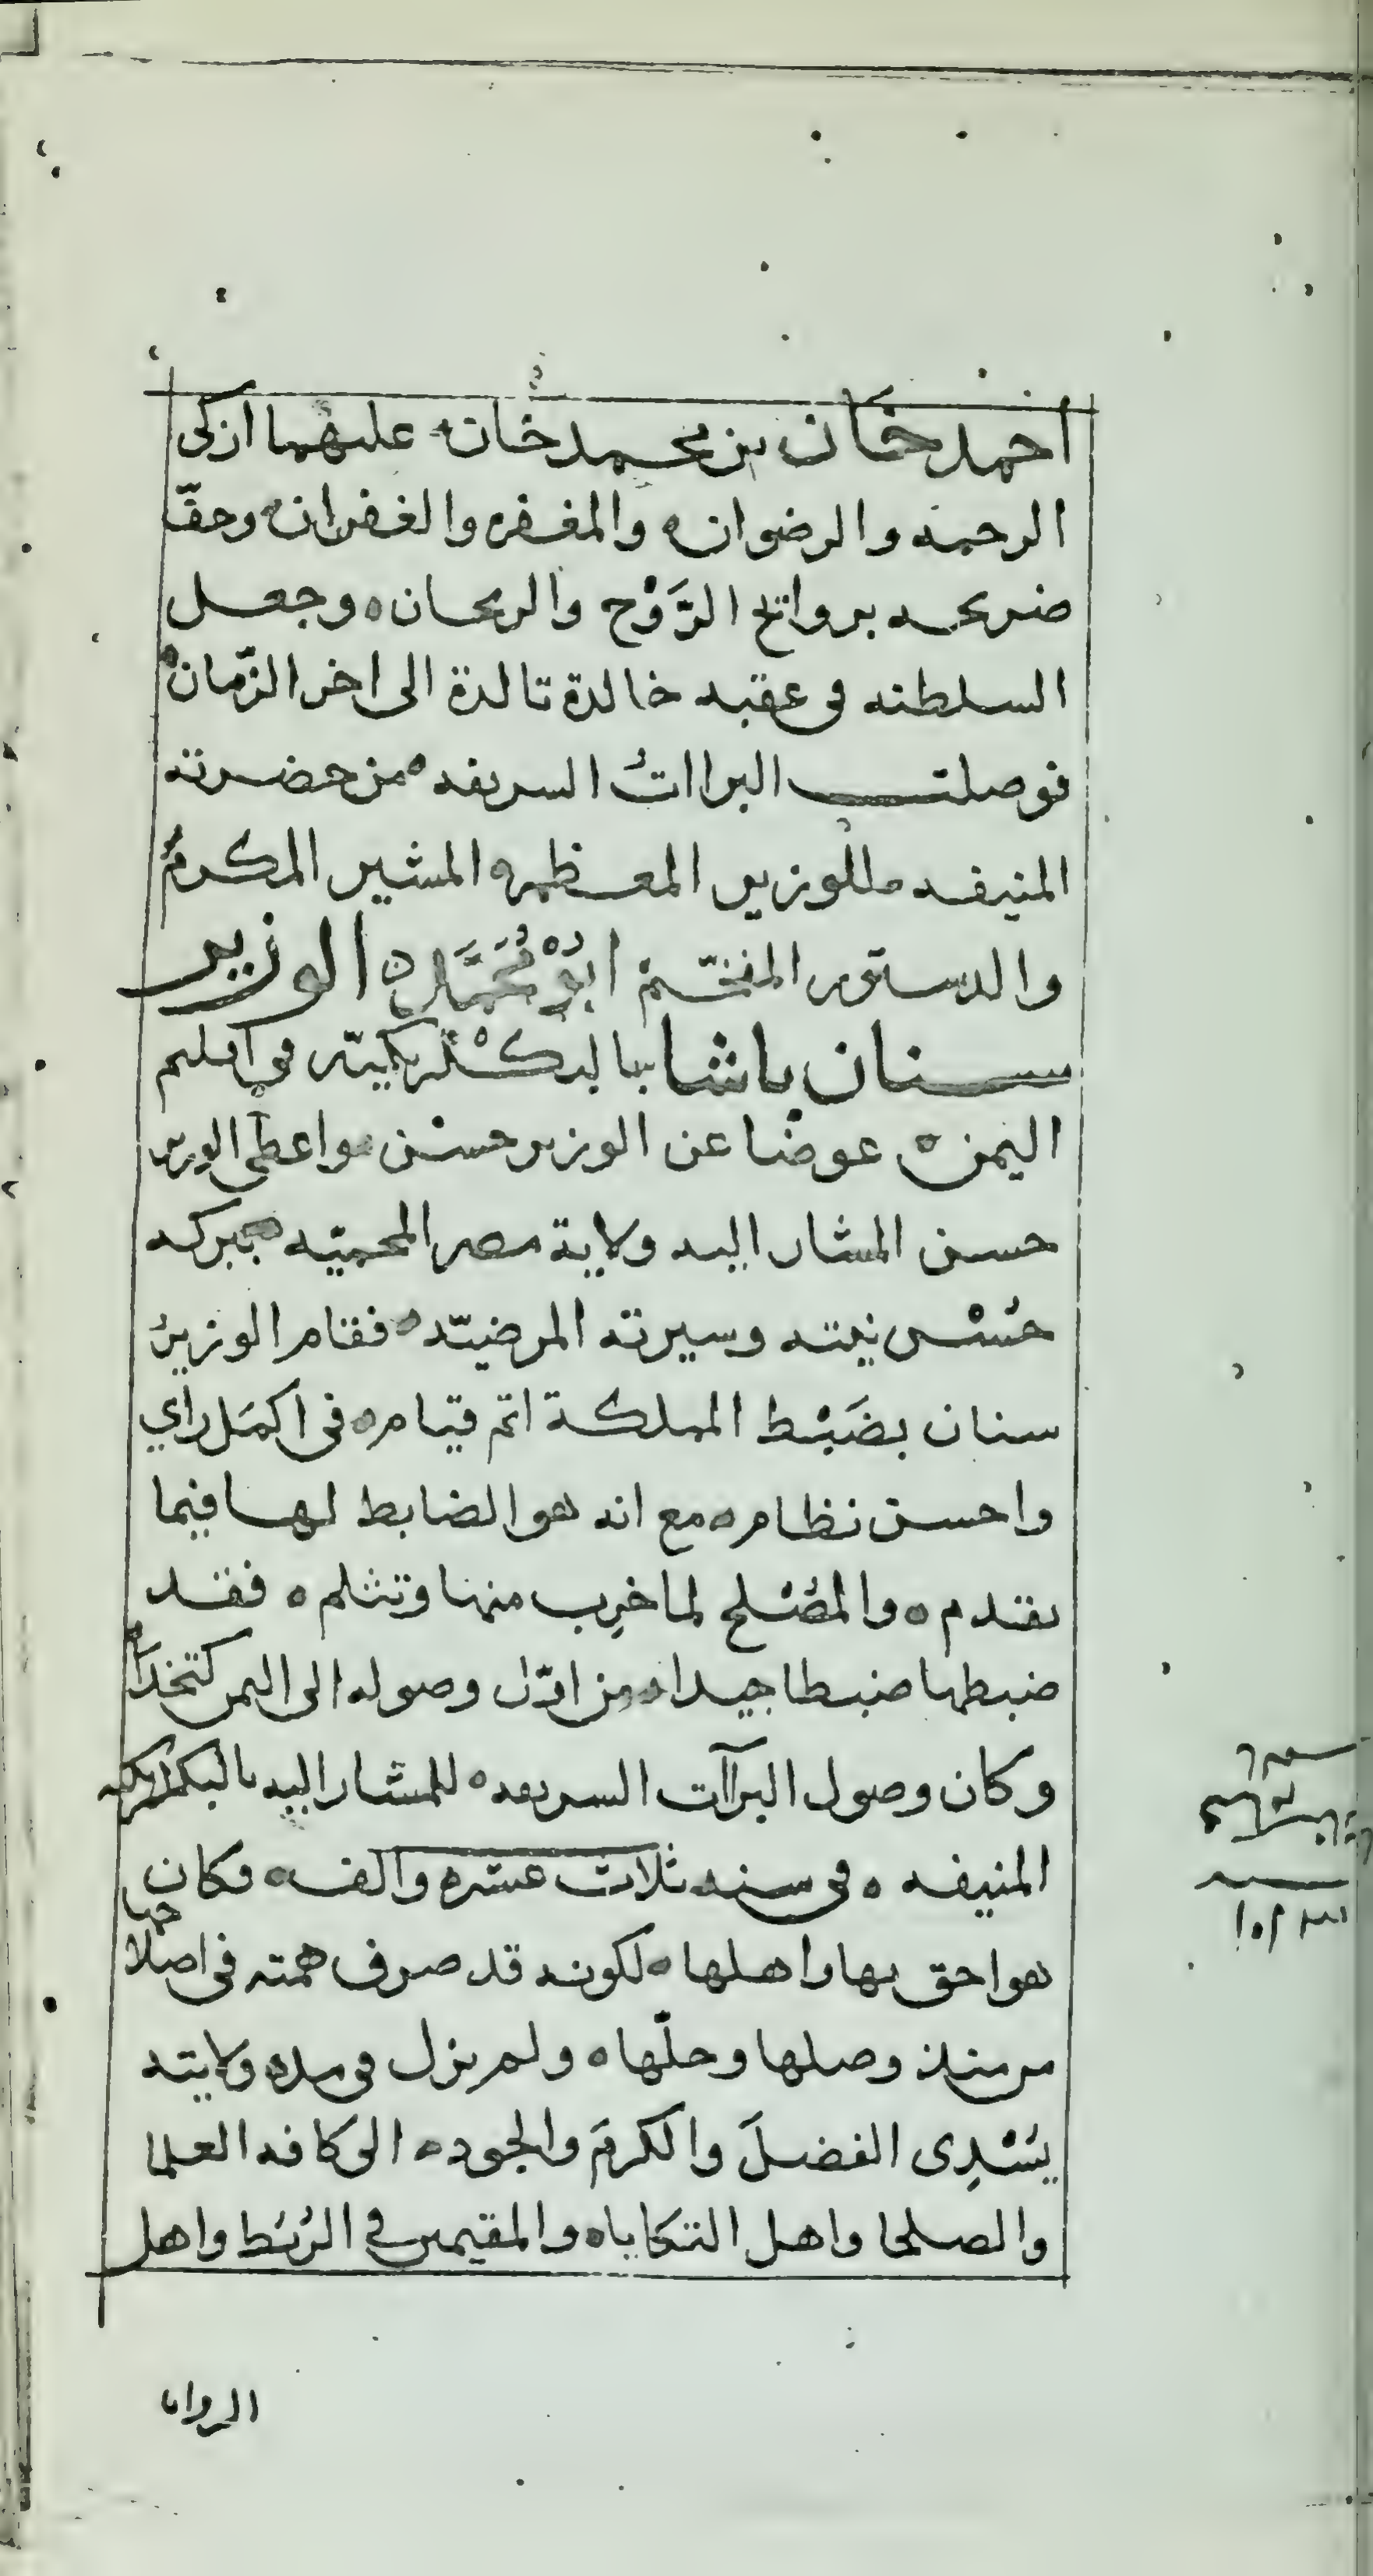 احمد خان بن محمد خان ه عليهما ازكى
الرحمه والرضوان ه والمغفره والغفران ه وحفّ
ضريحه بروائح الرَّوْح والريحان ه وجعل
السلطنه فى عقبه خالدة تالدة الى اخر الزّمان ه
فوصلت البراات السريفه ه من حضرته
المنيفه للوزير المعظم ه المشير المكرم
والدستور المفخّم ابُوْ مُحَمَّد الوزير
سنان باشا بالبكلربكيّه فى اقليم
اليمن ه عوضًا عن الوزير حسن ه واعطى الوزير
حسن المشار اليه ولاية مصر المحميّه ه ببركه
حُسْن نيته وسيرته المرضيّه ه فقام الوزير
سنان بضَبْط المملكة اتم قيام ه فى اكمَل راي
واحسن نظام ه مع انه هو الضابط لها فيما
تقدم ه والمُصْلح لما خرِب منها وتثلم ه فقد
ضبطها ضبطا جيدا ه من اوّل وصوله الى اليمن كتخدا ه
وكان وصول البراآت السريفه ه للمشار اليه بالبكلربكيه
المنيفه ه فى سنه ثلاث عشره والف ه فكان
هو احق بها واهلها ه لكونه قد صرف همته فى اصلاحها
من منذ وصلها وحلّها ه ولم يزل فى مده ولايته
يُسْدِى الفضلَ والكرمَ والجود ه الى كافه العلما
والصلحا واهل التكايا ه والمقيمين فى الرُبَط واهل
الزوايا
سنه ١٠١٣